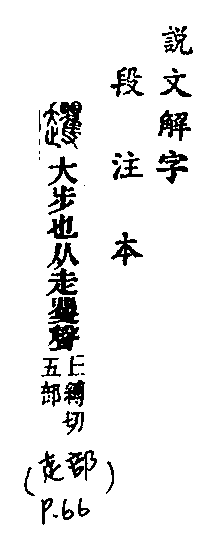 說文解字
段注本
大步也从走矍聲
丘縛切
五部
(走部)
P.66